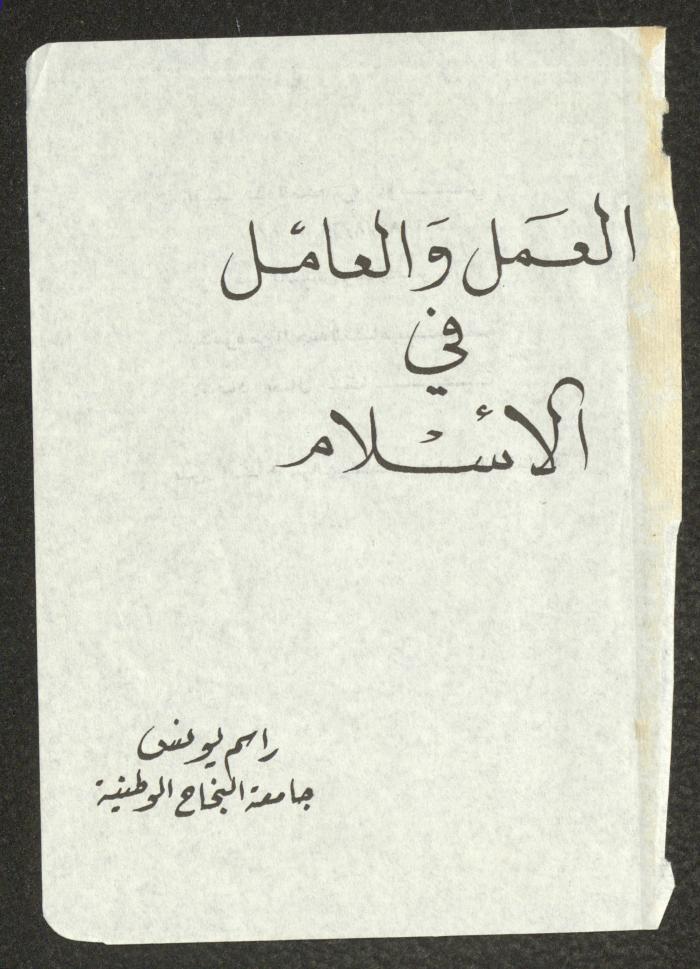 العَمَل وَالعامل
في
الاسلام
راسم يونس
جامعة النجاح الوطنية